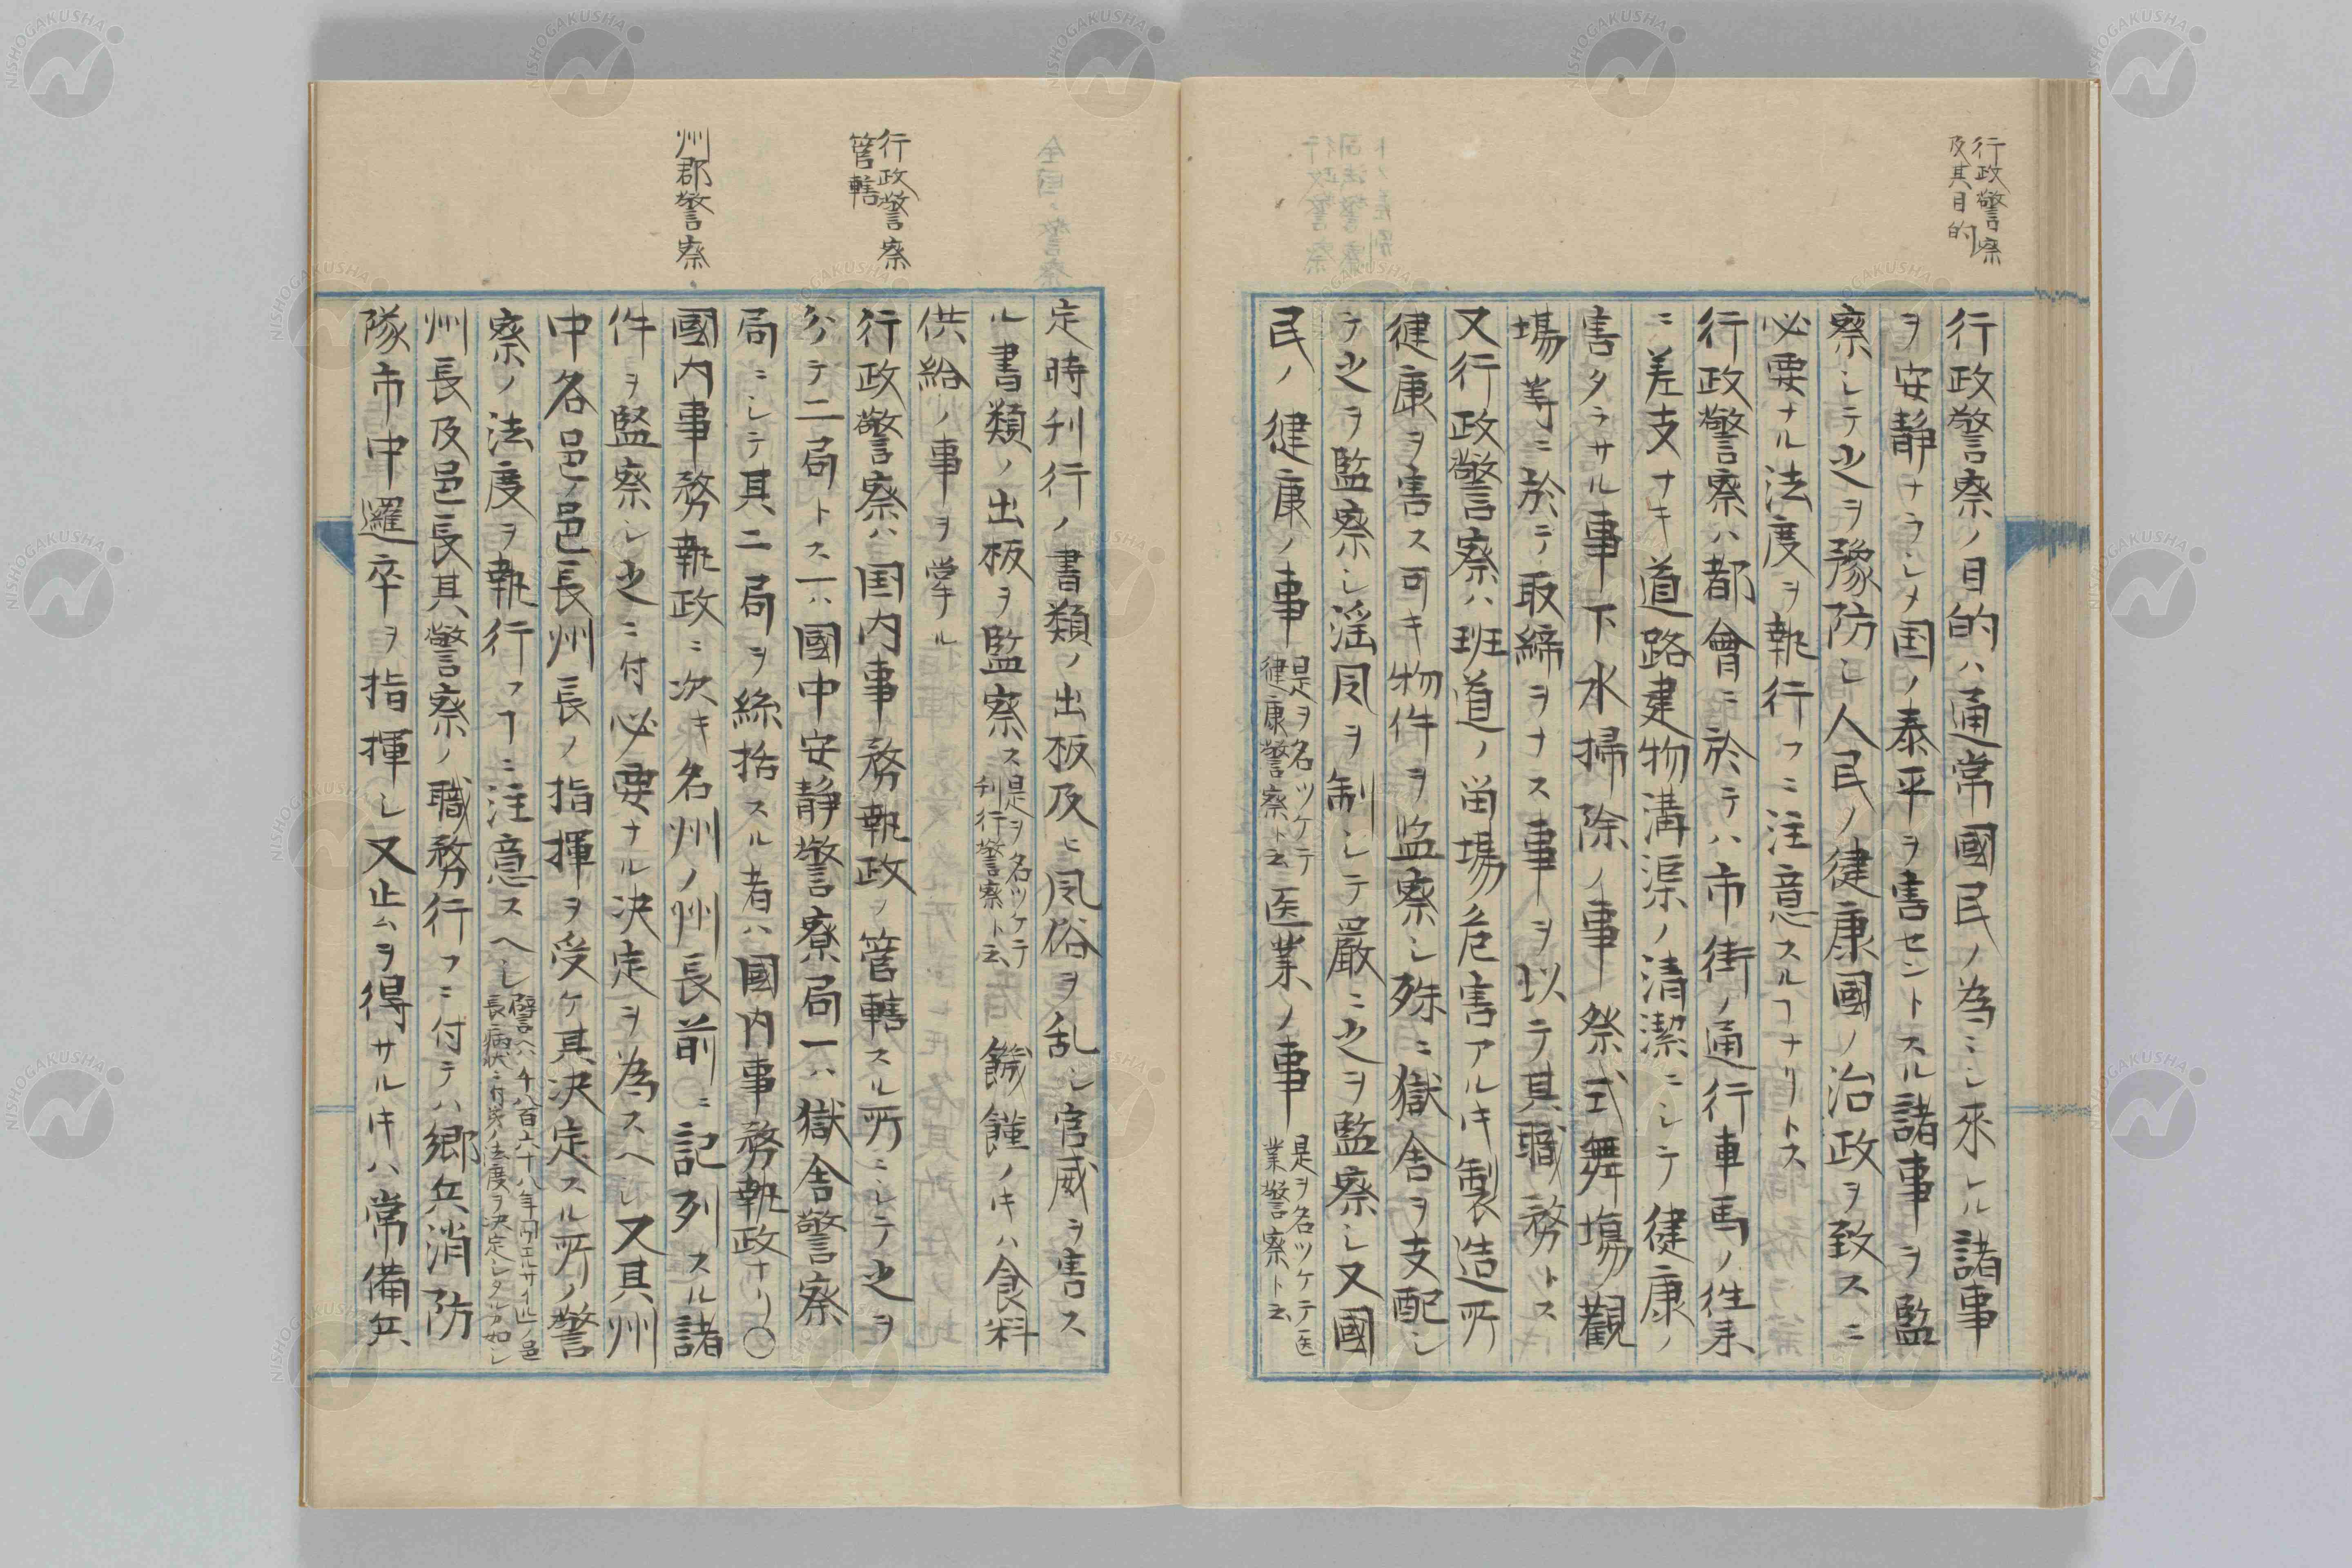 行政警察
及其目的
行政警察ノ目的ハ通常國民ノ為ニシ来レル諸事
ヲ安静ナラシメ国ノ泰平ヲ害セントスル諸事ヲ監
察シテ之ヲ豫防シ人民ノ健康國ノ治政ヲ致スニ
必要ナル法度ヲ執行フニ注意スルヿナリトス
行政警察ハ都會ニ於テハ市街ノ通行車馬ノ往来
ニ差支ナキ道路建物溝渠ノ清潔ニシテ健康ノ
害タラサル事下水掃除ノ事祭式舞塲觀
塲等ニ於テ取締ヲナス事ヲ以テ其職務トス
又行政警察ハ班道ノ畄塲危害アルキ製造所
健康ヲ害ス可キ物件ヲ監察シ殊ニ獄舎ヲ支配シ
テ之ヲ監察シ淫風ヲ制シテ嚴ニ之ヲ監察シ又國
民ノ健康ノ事是ヲ名ツケテ健康警察ト云医業ノ事是ヲ名ツケテ医業警察ト云
行政警察
管轄
州郡警察
定時刊行ノ書類ノ出板及ヒ風俗ヲ乱シ官威ヲ害ス
ル書類ノ出板ヲ監察ス是ヲ名ツケテ刊行警察ト云饑饉ノキハ食料
供給ノ事ヲ掌ル
行政警察ハ国内事務執政ノ管轄スル所ニシテ之ヲ
分テ二局トス一ハ國中安静警察局一ハ獄舎警察
局ニシテ其二局ヲ総括スル者ハ國内事務執政ナリ〇
國内事務執政ニ次キ名州ノ州長前〇ニ記列スル諸
件ヲ監察シ之ニ付必要ナル決定ヲ為スヘシ又其州
中各邑ノ邑長州長ノ指揮ヲ受ケ其決定スル所ノ警
察ノ法度ヲ執行フヿニ注意スヘシ譬ヘハ千八百六十八年同エルサイルノ邑長病状ニ付其ノ法度ヲ決定シタルカ如シ
州長及邑長其警察ノ職務行フニ付テハ郷兵消防
隊市中邏卒ヲ指揮シ又止ムヲ得サルキハ常備兵